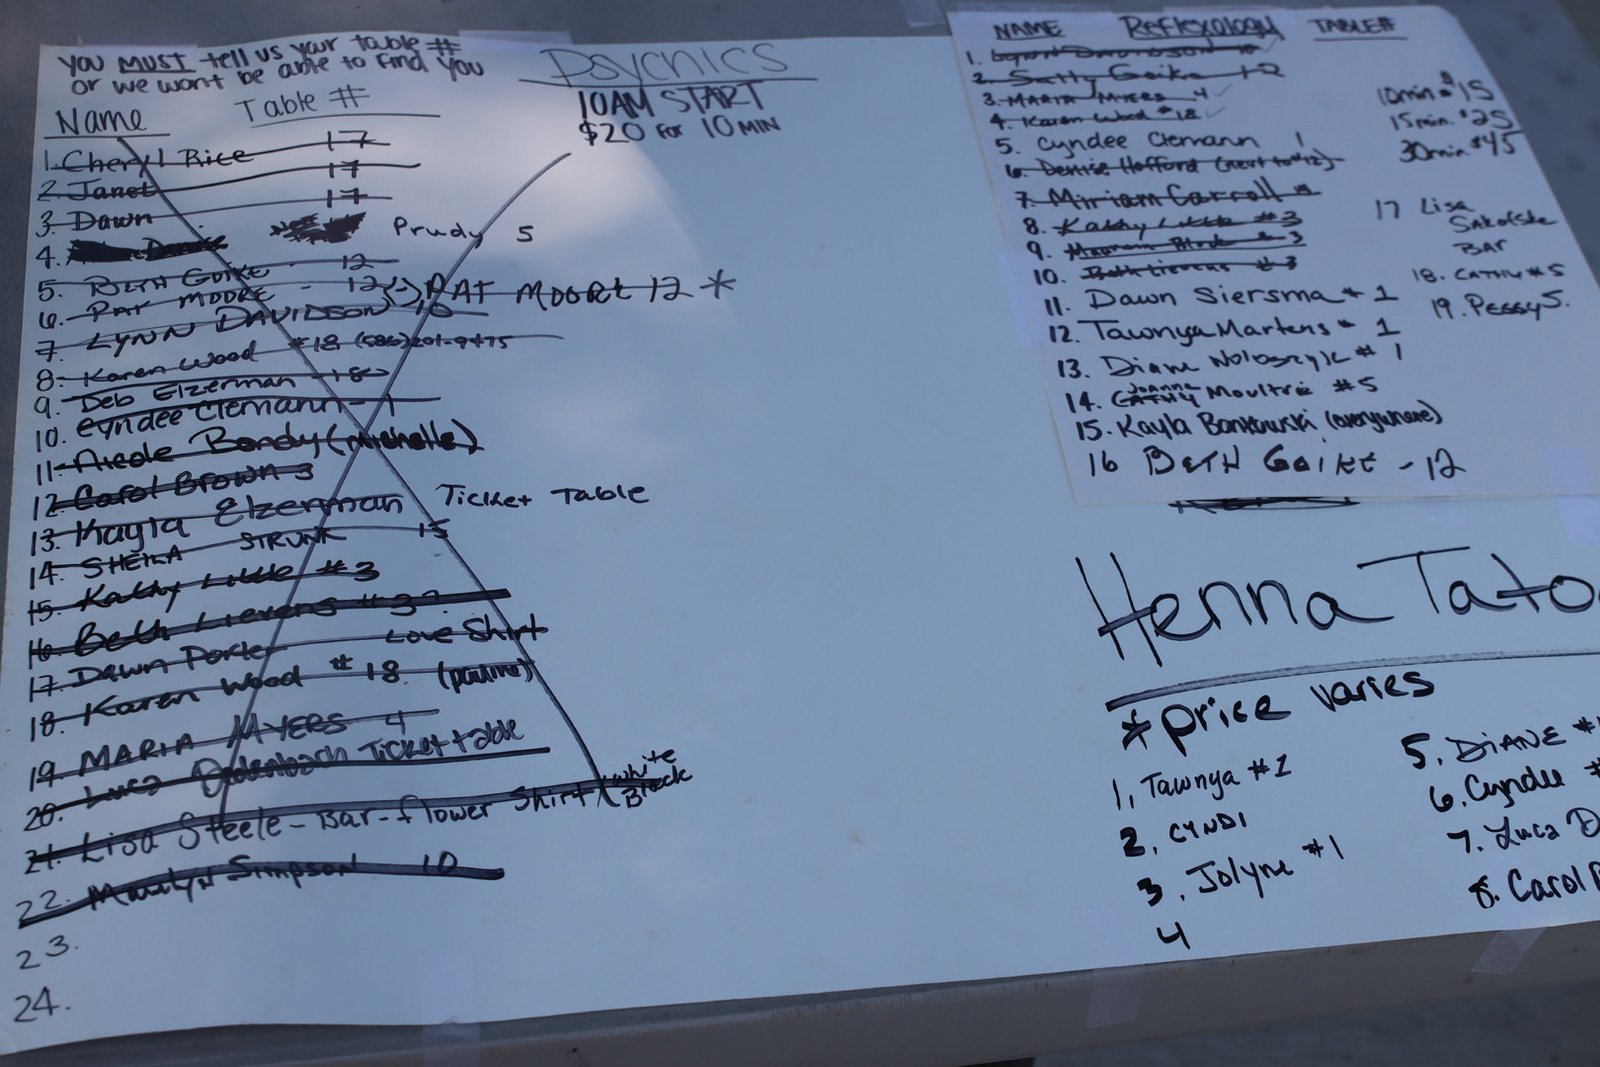 YOU MUST tell us your table #
or we wont be able to find you
Name Table #
1. Cheryl Rice 17
2. Janet 17
3. Dawn 17
4. Prudy 5
5. BETH GOIKE - 12
6. PAT MOORE - 12 PAT MOORE 12 *
7. LYNN DAVIDSON 10
8. Karen Wood #18 (586) 201-9475
9. Deb Elzerman - 18
10. Cyndee Clemann - 1
11. Nicole Bondy (michelle)
12. Carol Brown 3
13. Kayla Elzerman Ticket Table
14. SHEILA STRUNK 15
15. Kathy Little #3
16. Beth Lievens #3
17. Dawn Porter Love Shirt
18. Karen Wood #18
19. MARIA MYERS 4
20. Luca Ticket table
21. Lisa Steele - Bar - flower Shirt white Black
22. Marilyn Simpson 10
23.
24.
Psychics
10AM START
$20 for 10 MIN
NAME Reflexology TABLE#
1. Lynn Davidson 10
2. Goike 12
3. MARIA MYERS 4
4. Karen Wood #18
5. Cyndee Clemann 1
6. Denise Hofford (next to #12)
7. Miriam Carroll
8. Kathy Little #3
9. 3
10. Beth Lievens #3
11. Dawn Siersma * 1
12. Tawnya Martens * 1
13. Diane # 1
14. Joanne Moultrie #5
15. Kayla Bonkowski (everywhere)
16 BETH GOIKE - 12
10min $15
15min. $25
30min. $45
17 Lisa
Sakofske
BAR
18. CATHY #5
19. Peggy 5.
Henna Tato
*price varies
1, Tawnya #1
2. CYNDI
3. Jolyne #1
4
5. DIANE #
6. Cyndee #
7. Luca D
8. Carol